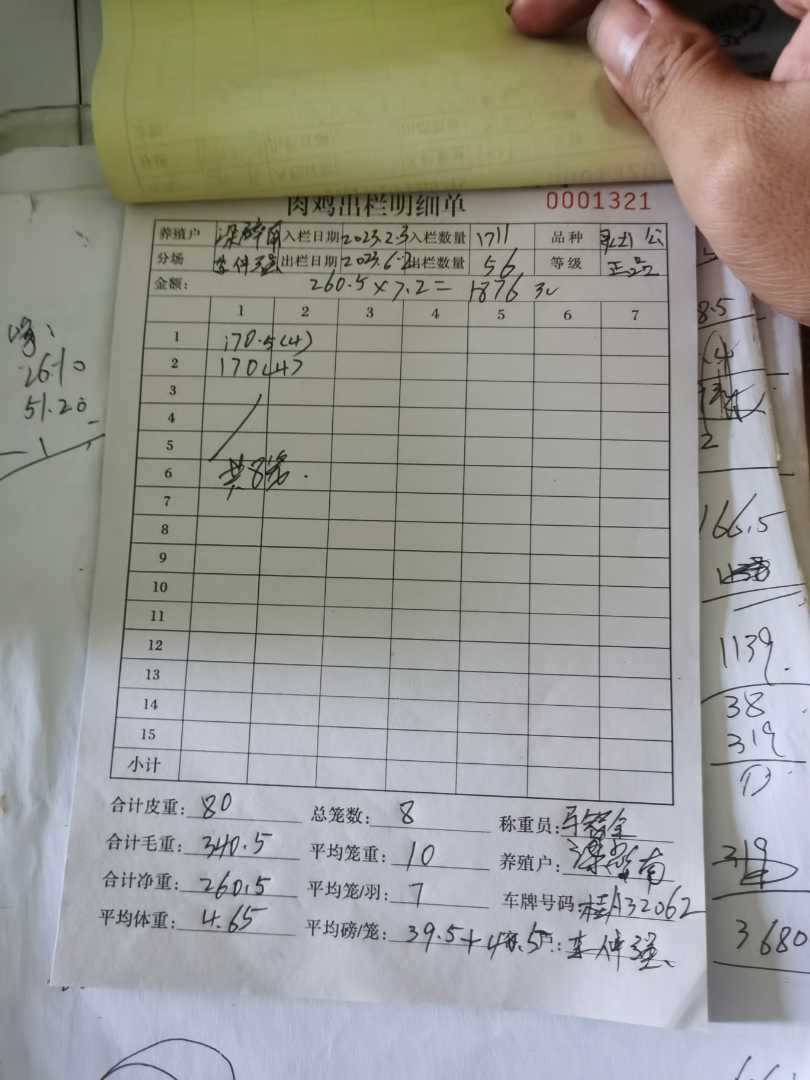 肉鸡出栏明细单 0001321
养殖户 入栏日期 2023.2.3 入栏数量 1711 品种 公
分场 出栏日期 2023.6. 出栏数量 56 等级 正品
金额: 260.5×7.2=1876元
1 2 3 4 5 6 7
1 170.5(4)
2 170(4)
3
4
5
6 共8笼.
7
8
9
10
11
12
13
14
15
小计
合计皮重: 80 总笼数: 8 称重员:
合计毛重: 340.5 平均笼重: 10 养殖户: 南
合计净重: 260.5 平均笼/羽: 7 车牌号码: 桂A32062
平均体重: 4.65 平均磅/笼: 39.5+
26.10
51.20
8.5
2
166.5
1139.
38
319
319
3680